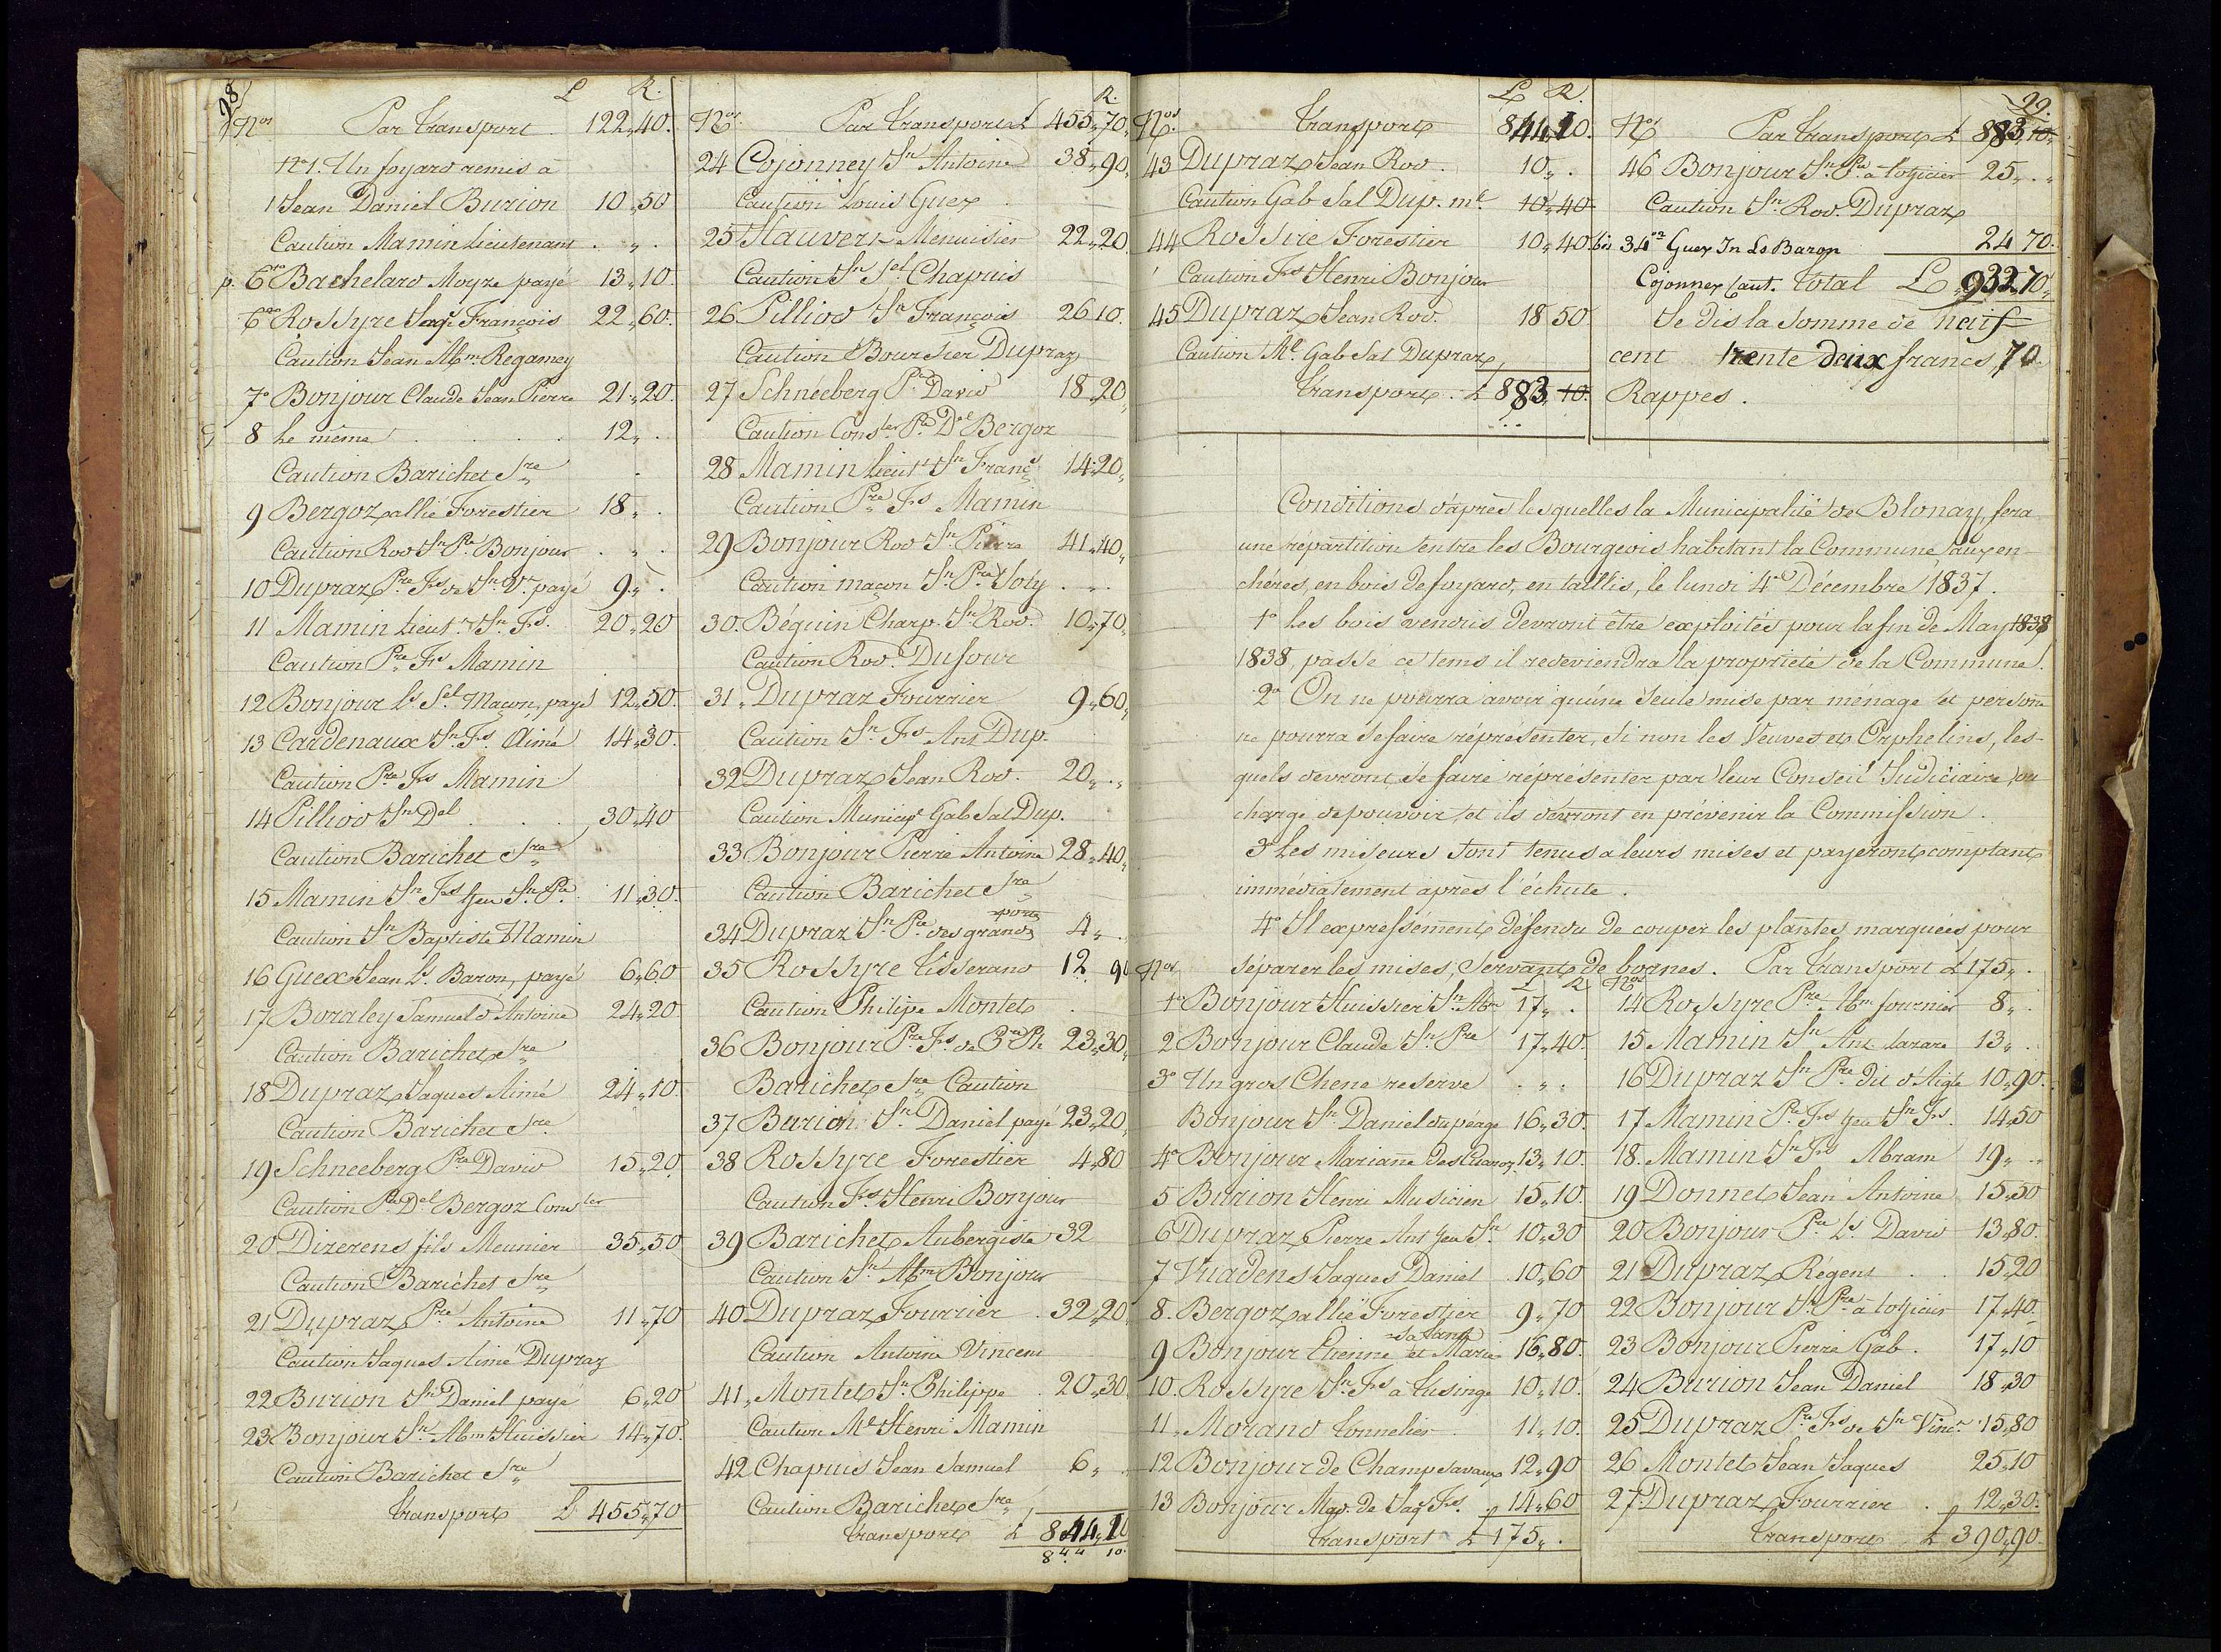 98
L R.
Nos Par transport 122,,40.
No 1. Un foyard remis à
1 Jean Daniel Burion 10,,50
Caution Mamin Lieutenant . ,, .
p. 6re Bachelard Moyze payé 13,,10.
6me Rossyre Jaqe François 22,,60.
Caution Jean Abm Regamey
7e Bonjour Claude Jean Pierre 21,,20.
8 Le même 12,, .
Caution Barichet Sre
9 Bergoz allié Forestier 18,, .
Caution Rod Jn Pre Bonjour . ,, .
10 Dupraz Pre Fs de Jn Vt payé 9,, .
11 Mamin Lieut. Jn Fs. 20,,20
Caution Pre Fs Mamin
12 Bonjour Ls Sel Maçon, payé 12,,50.
13 Cardenaux Jn Fs. Aimé 14,,30.
Caution Pre Fs Mamin
14 Pilliod Jn Del 30,,40
Caution Barichet Sre
15 Mamin Jn Fs feu Jn Pre 11,,30.
Caution Jn Baptiste Mamin
16 Guex Jean Ls Baron, payé 6,,60
17 Boraley Samuel d'Antoine 24,,20
Caution Barichet Sre
18 Dupraz Jaques Aimé 24,,10.
Caution Barichet Sre
19 Schneeberg Pre David 15,,20
Caution Pre Del Bergoz Conser
20 Dizerens fils Meunier 35,,50
Caution Barichet Sre
21 Dupraz Pre Antoine 11,,70
Caution Jaques Aimé Dupraz
22 Burion Jn Daniel payé 6,,20
23 Bonjour Jn Abm Huissier 14,,70.
Caution Barichet Sre
Transport L 455,,70
R.
Nos Par transport L 455,,70,,
24 Cojonney Jn Antoine 38,,90,,
Caution Louis Guex
25 Hauvert Menuisier 22,,20
Caution Jn Sel Chapuis
26 Pilliod Jn François 26 10.
Caution Boursier Dupraz
27 Schneeberg Pre David 18,,20,,
Caution Conser Pre Del Bergoz
28 Mamin Lieut Jn Frans 14,,20,,
Caution Pre Fs Mamin
29 Bonjour Rod Jn Pierre 41,,40,,
Caution maçon Jn Pre Joly . ,, .
30. Béguin Charp. Jn Rod. 10,,70,,
Caution Rod. Dufour
31. Dupraz Fourrier 9,,60,,
Caution Jn Fs Ant Dup.
32 Dupraz Jean Rod. 20,, . ,,
Caution Municipl Gab Sal Dup.
33 Bonjour Pierre Antoine 28,,40,,
Caution Barichet Sre
34 Dupraz Jn Pre des grands 4,, .
35 Rossyre Tisserand 12 90
Caution Philipe Montet
36 Bonjour Pre Fs de Pre Ph 23,,30,,
Barichet Sre Caution
37 Burion Jn Daniel payé 23,,20,,
38 Rossyre Forestier 4,,80
Caution Fs. Henri Bonjour
39 Barichet Aubergiste 32
Caution Jn Abm Bonjour
40 Dupraz Fourrier 32,,20,,
Caution Antoine Vincent
41,, Montet Jn Philippe 20,,30
Caution Ml Henri Mamin
42 Chapuis Jean Samuel 6,, .
Caution Barichet Sre
Transport L 844,,10
844 10.
L R.
Nos. Transport 844,10.
43 Dupraz Jean Rod. 10,, .
Caution Gab Sal Dup. ml 10,,40
44 Rossire Forestier 10,,40
Caution Fs Henri Bonjour
45 Dupraz Jean Rod. 18 50
Caution Ml. Gab Sal Dupraz
Transport L 883,,10.
99.
Nos Par transport L 883,10,,
46 Bonjour Jn Pre à Cojicier 25,, . ,,
Caution Jn Rod. Dupraz
bis 34on Guex Jn Ls Baron 24 70.
Cojonney Caut. Total L 932,70,,
Je dis la somme de neuf
cent trente deux francs, 70.
Rappes.
Conditions d'après lesquelles la Municipalité de Blonay, fera
une repartition entre les Bourgeois habitant la Commune aux en-
chéres, en bois de foyard, en taillis, le lundi 4e Décembre 1837.
1o Les bois vendus devront être exploités pour la fin de May 1838
1838, passé ce tems il redeviendra la propriété de la Commune.
2o On ne pourra avoir qu'une seule mise par ménage et personne
ne pourra se faire réprésenter, si non les Veuves et Orphelins, les-
quels devront se faire réprésenter par leur Conseil Judiciaire, ou
charge de pouvoir, et ils devront en prévenir la Commission.
3o Les miseurs sont tenus à leurs mises et payeront comptant
immédiatement après l'échute.
4o Il expressément défendu de couper les plantes marquées pour
séparer les mises, servant de bornes. Par transport L 175,, .
Nos L R
1o Bonjour Huissier Jn Abm 17,, .
2 Bonjour Claude Jn Pre 17,,40.
3o Un gros Chene reservé . ,, .
Bonjour Jn Daniel du péage 16,,30.
4o Bonjour Marianne des Cuaroz 13,,10.
5 Burion Henri Musicien 15,,10.
6 Dupraz Pierre Ant feu Jn 10,,30
7 Vuadens Jaques Daniel 10,,60
8. Bergoz allié Forestier 9,,70
9 Bonjour Etienne et sa tante Marie 16,,80.
10. Rossyre Jn Fs à Tusinge 10,,10.
11,, Morand Tonnelier 11,,10.
12 Bonjour de Champsavaux 12,,90
13 Bonjour Mad. de Jaq Fs. 14,,60
Transport L 175,, .
Nos
14 Rossyre Pre Abm fournier 8,, .
15 Mamin Jn Ant Lazare 13,, .
16 Dupraz Jn Pre dit d'Aigle 10,,90.
17 Mamin Pre Fs feu Jn Fs. 14,,50
18. Mamin Jn Fs Abram 19,, . ,,
19 Donnet Jean Antoine 15,,50
20 Bonjour Pre Ls David 13,,80.
21 Dupraz Régent 15,,20
22 Bonjour Jn Pre à Cojicier 17,,40.
23 Bonjour Pierre Gab. 17,,10
24 Burion Jean Daniel 18,,30
25 Dupraz Pre Fs de Jn Vinct 15,,80
26 Montet Jean Jaques 25,,10
27. Dupraz Fourrier 12,,30.
Transport L 390,,90.